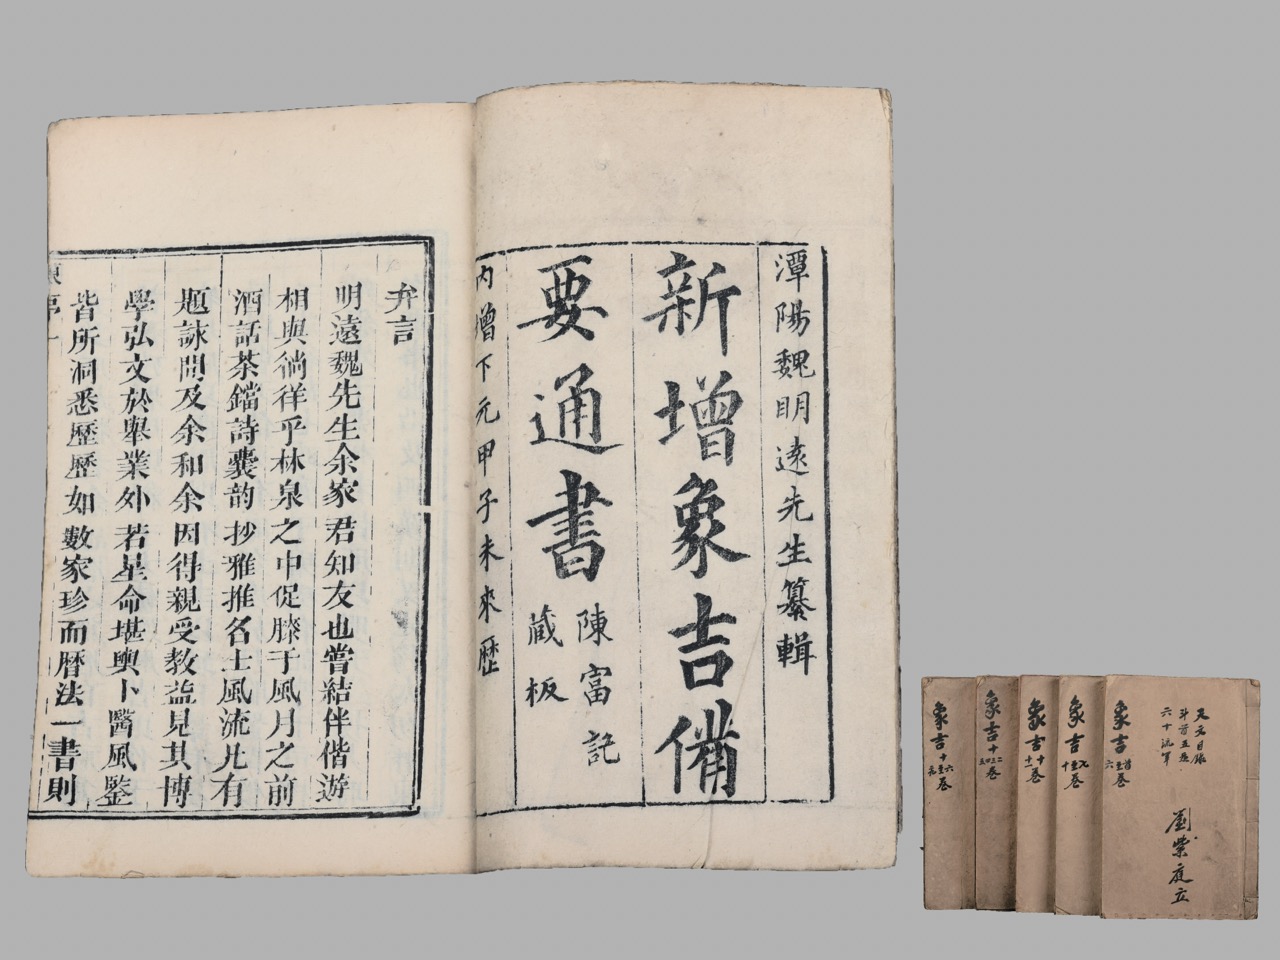 潭陽魏明遠先生纂輯
新增象吉備
要通書
陳富記
藏板
內增下元甲子未來歷
弁言
明遠魏先生余家君知友也嘗結伴偕遊
相與徜徉乎林泉之中促膝于風月之前
酒話茶鐺詩囊韵抄雅推名士風流凢有
題詠間及余和余因得親受教益見其博
學弘文於舉業外若星命堪輿卜醫風鑒
皆所洞悉歷歷如數家珍而暦法一書則
天文目錄
六十流年
劉紫庭立
象吉首至六卷
象吉九至十卷
象吉十卷
象吉十二三四五卷
象吉十六至卷